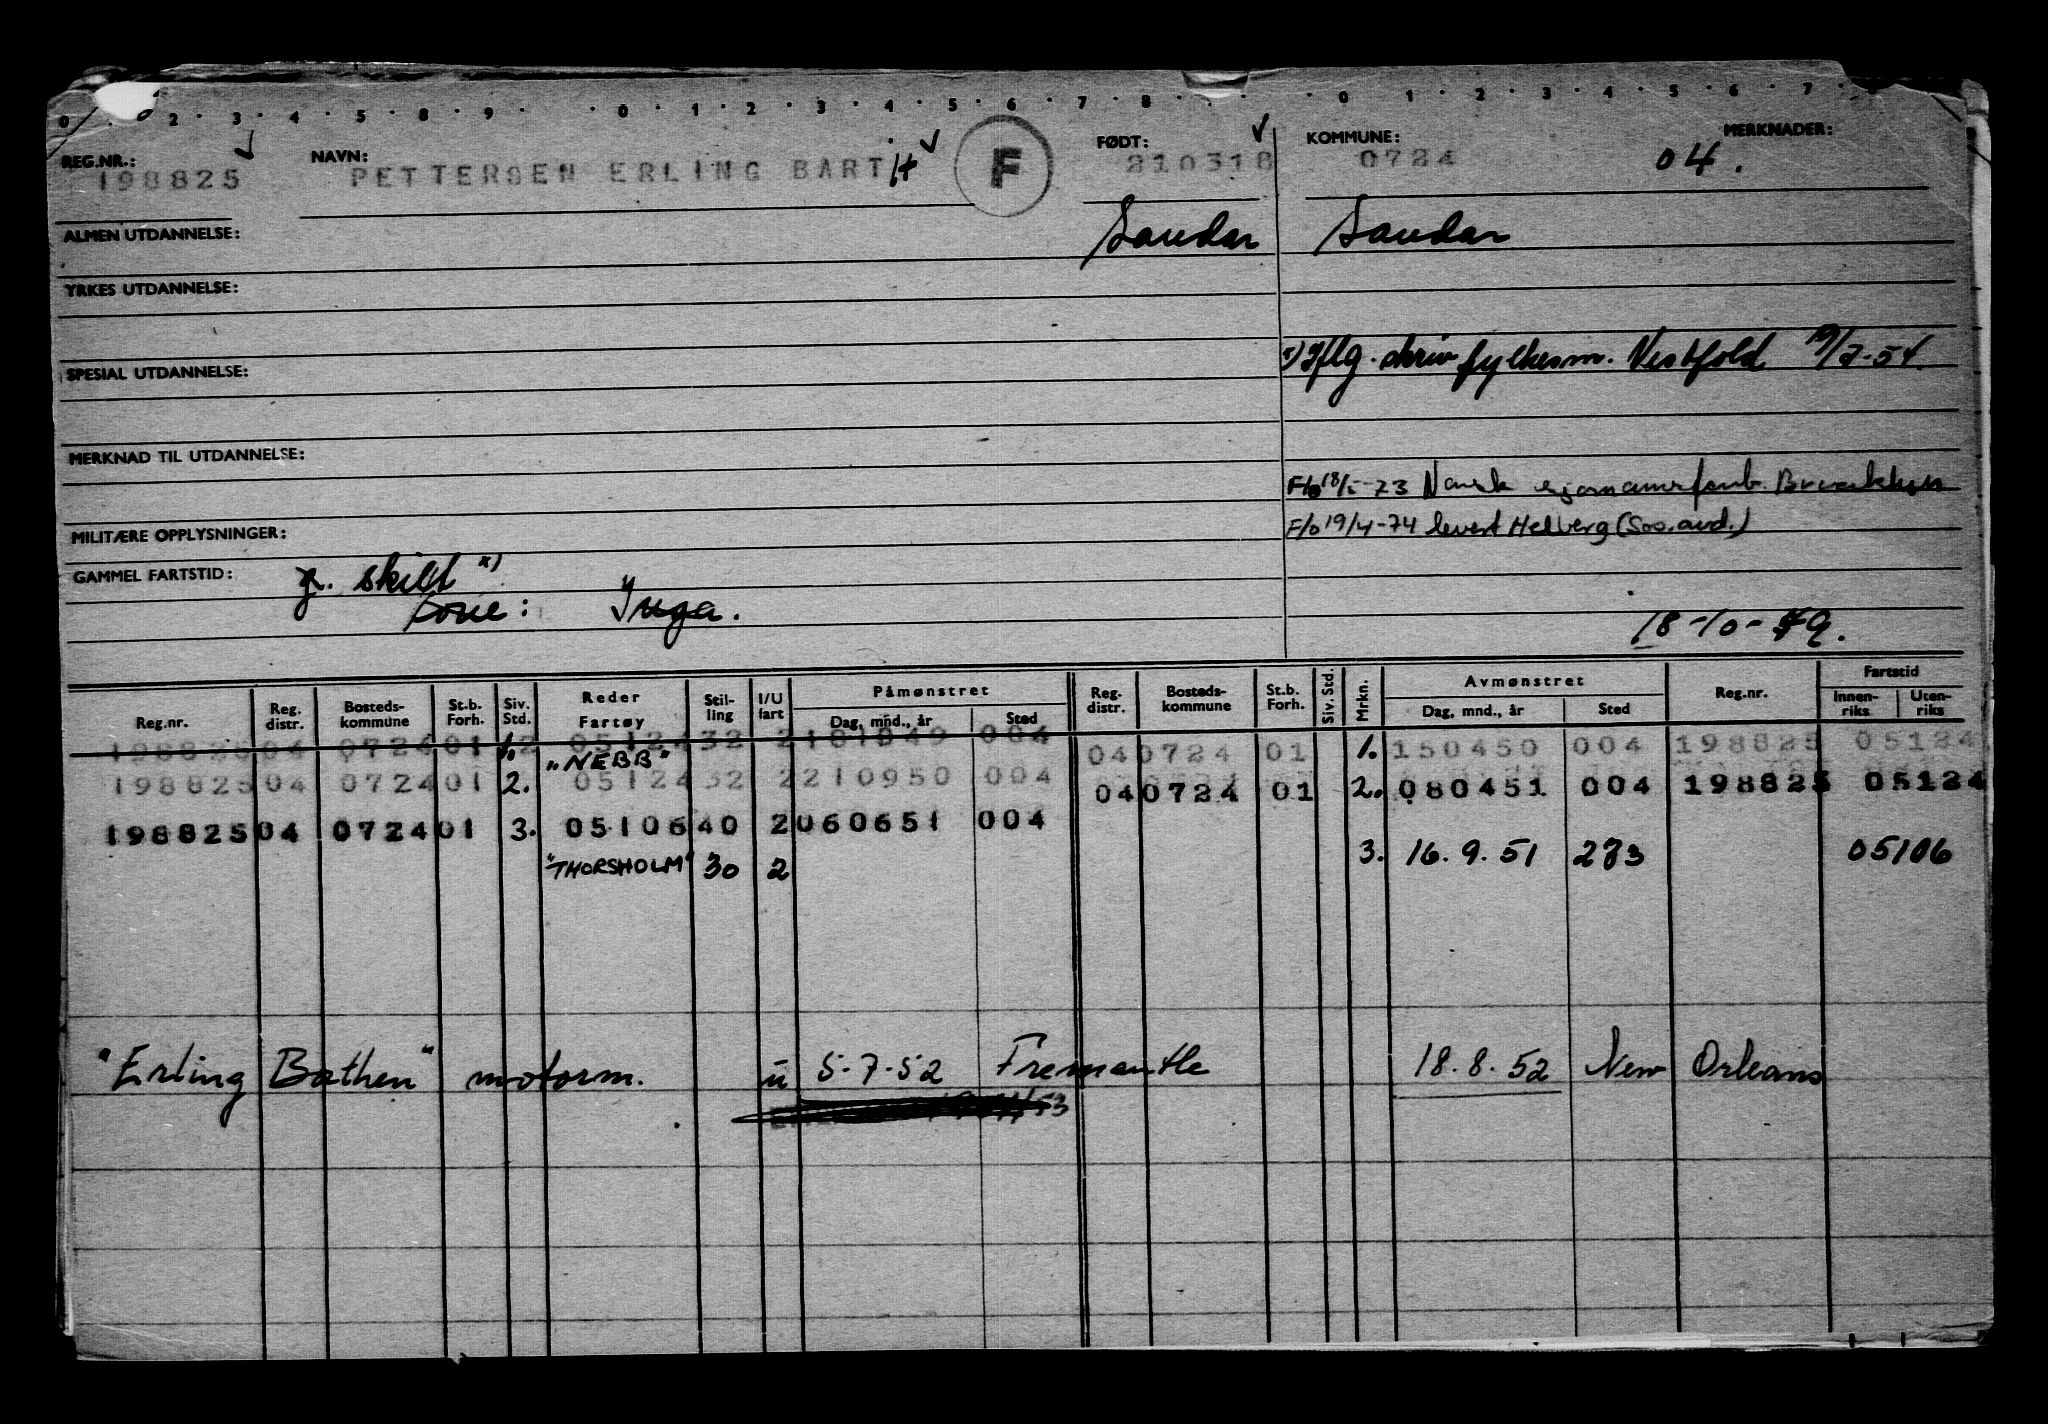 0 . 2 . 3 . 4 . 5 . 8 . 9 . . 0 . 1 . 2 . 3 . 4 . 5 . 6 . 7 . 8 . . 0 . 1 . 2 . 3 . 4 . 5 . 6 . 7 .
REG.NR.: NAVN: FØDT: KOMMUNE: MERKNADER:
198825 PETTERSEN ERLING BARTH F 210318 0724 04.
ALMEN UTDANNELSE: Sandar Sandar
YRKES UTDANNELSE:
x) Iflg. skriv fylkesm. Vestfold 19/2-54.
SPESIAL UTDANNELSE:
MERKNAD TIL UTDANNELSE:
F/o 18/5-73 Norsk
MILITÆRE OPPLYSNINGER: F/o 19/4-74 levert Helberg (Sos.avd.)
GAMMEL FARTSTID: g. skilt x)
Kone: Inga. 18-10-49.
Reg.nr. Reg. distr. Bosteds-kommune St.b. Forh. Siv. Std. Reder Fartøy Stil-ling I/U fart Påmønstret Dag, mnd., år Sted Reg. distr. Bosteds-kommune St.b. Forh. Siv. Std. Mrkn. Avmønstret Dag, mnd., år Sted Reg.nr. Fartstid Innen-riks Uten-riks
198825 04 0724 01 1. 2 05124 32 2 181049 004 04 0724 01 1. 150450 004 198825 05124
"NEBB"
198825 04 0724 01 2. 05124 32 2 210950 004 04 0724 01 2. 080451 004 198825 05124
198825 04 0724 01 3. 05106 40 2 060651 004
"THORSHOLM" 30 2 3. 16.9.51 273 05106
"Erling Bothen" motorm. u 5-7-52 Fremantle 18.8.52 New Orleans
53